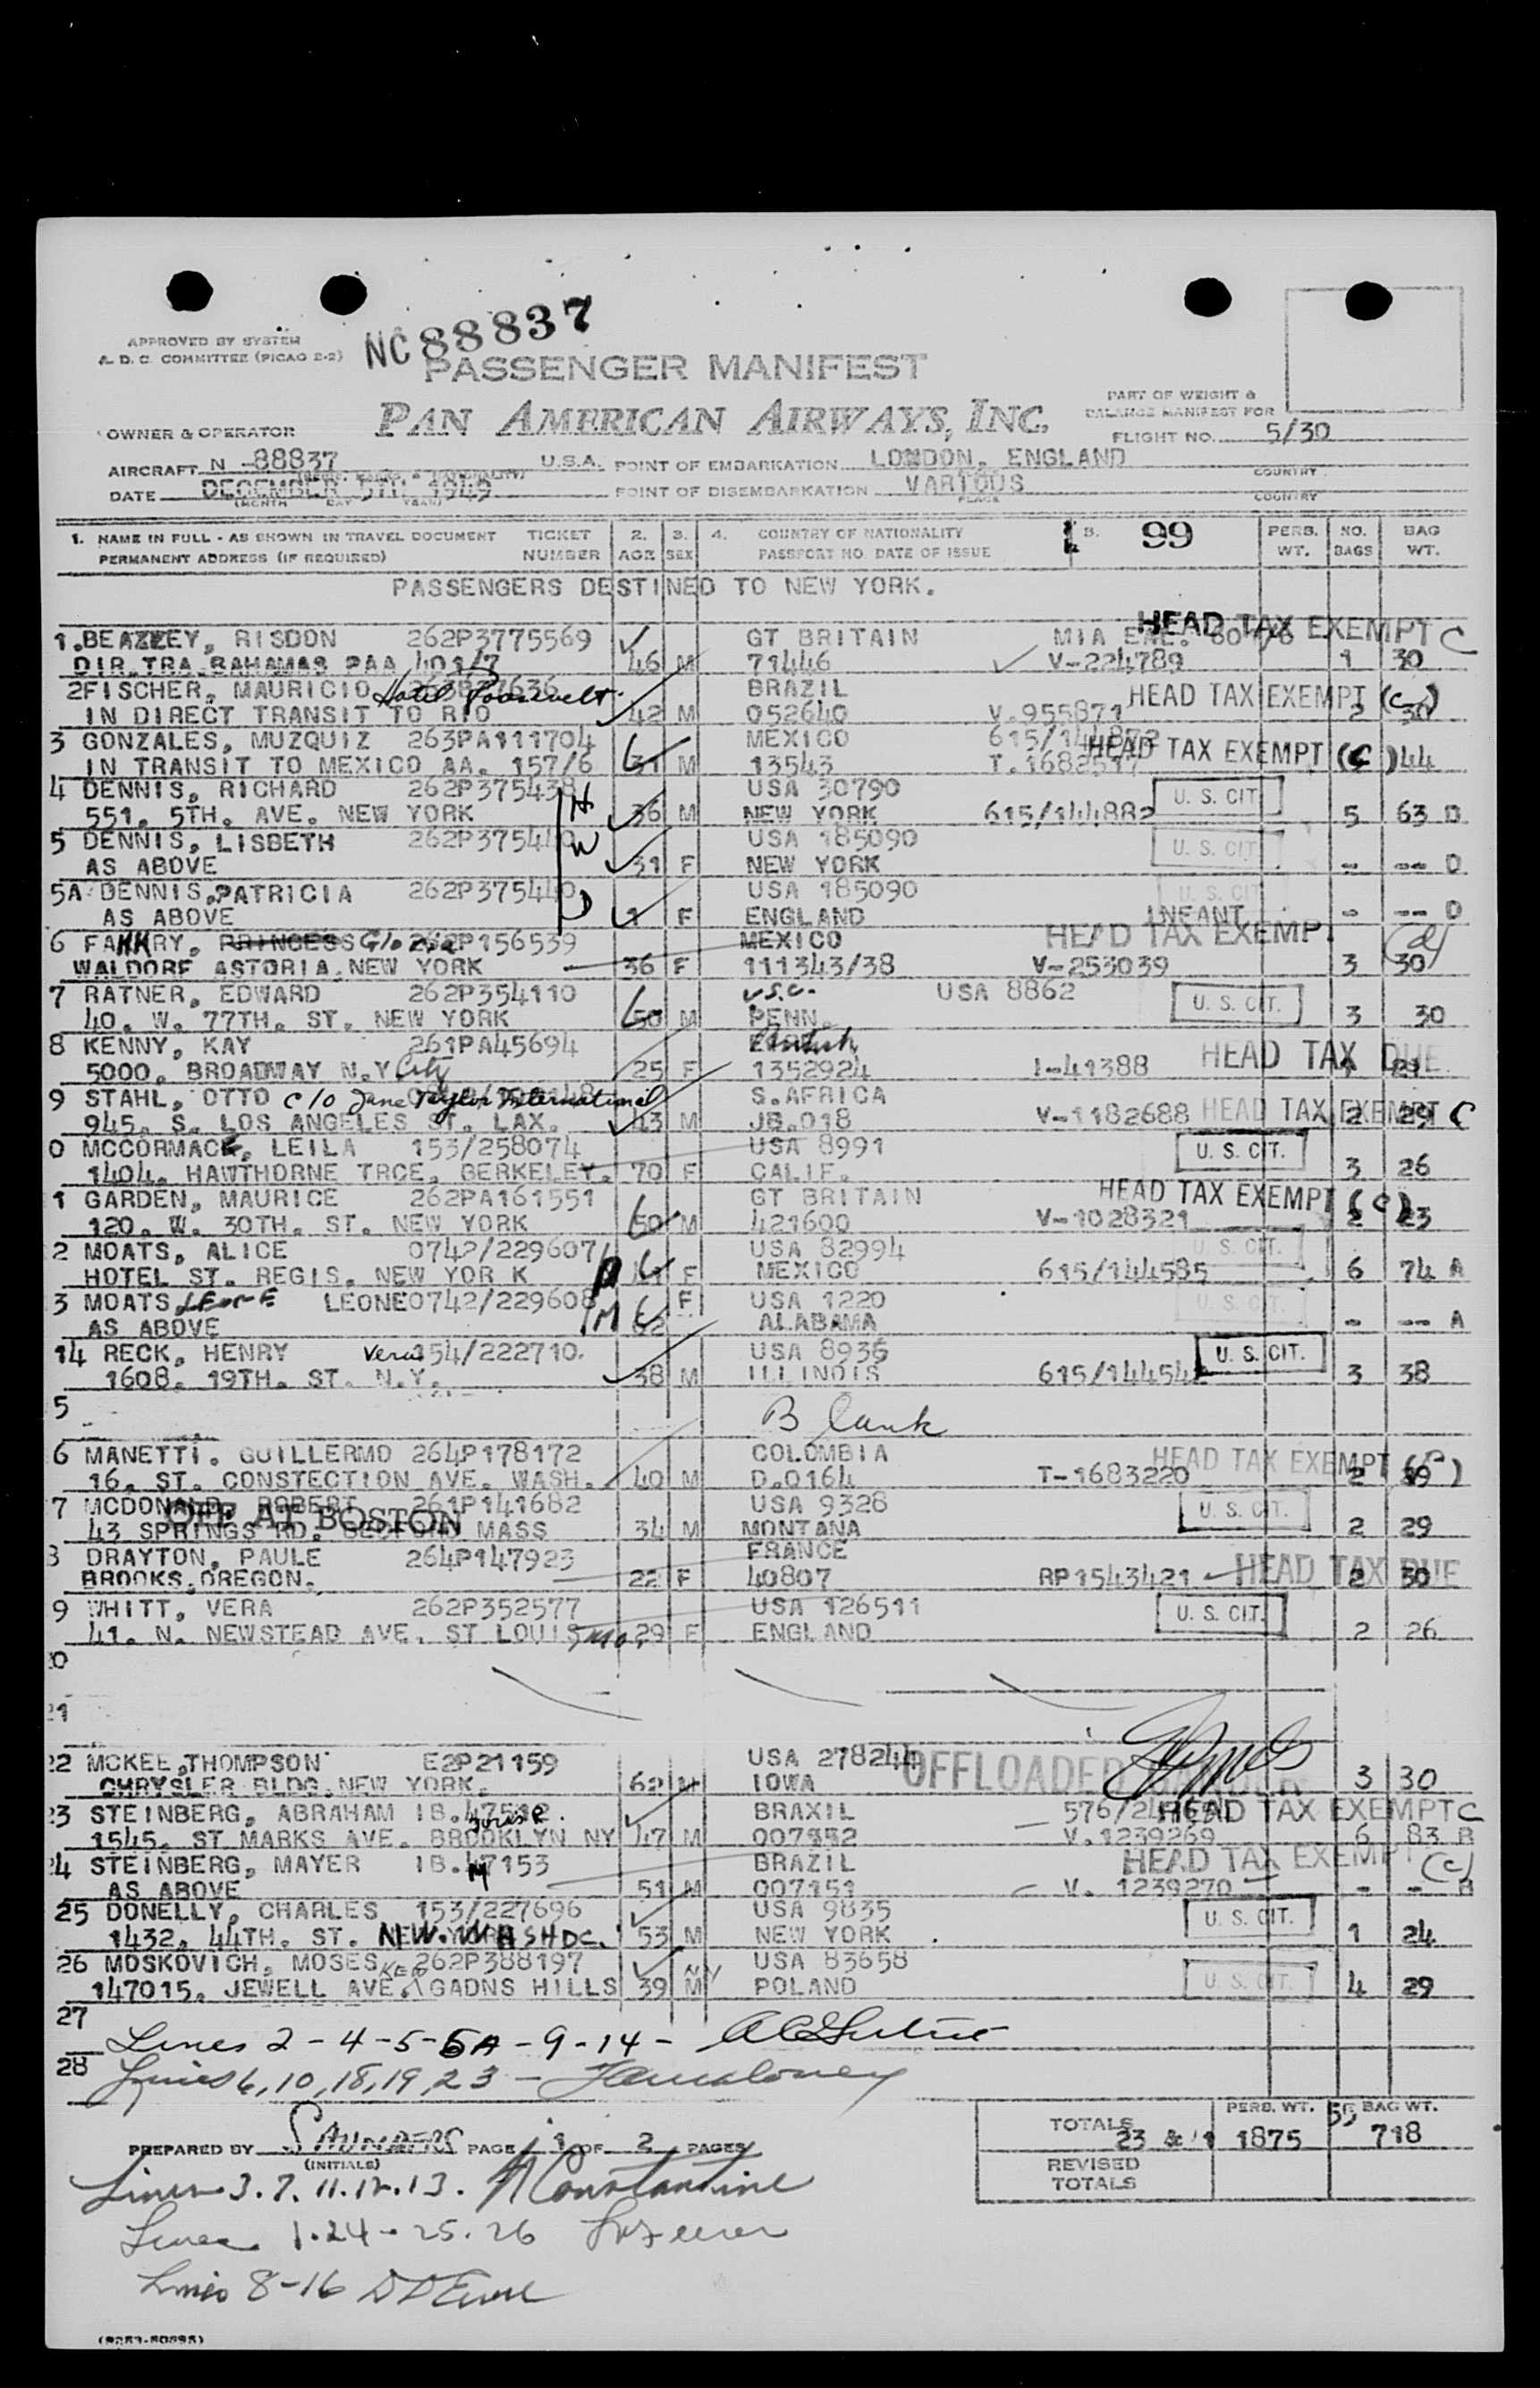 NC 88837
APPROVED BY SYSTEM
A. D. C. COMMITTEE (PICAO 2-2)
PASSENGER MANIFEST
PAN AMERICAN AIRWAYS, INC.
PART OF WEIGHT &
BALANCE MANIFEST FOR
OWNER & OPERATOR
FLIGHT NO. 5/30
AIRCRAFT N -88837 U.S.A. POINT OF EMBARKATION LONDON, ENGLAND COUNTRY
DATE DECEMBER 5TH 1949 POINT OF DISEMBARKATION VARIOUS COUNTRY
(MONTH DAY YEAR) PLACE
1. NAME IN FULL - AS SHOWN IN TRAVEL DOCUMENT TICKET 2. 3. 4. COUNTRY OF NATIONALITY 5. 99 PERS. NO. BAG
PERMANENT ADDRESS (IF REQUIRED) NUMBER AGE SEX PASSPORT NO. DATE OF ISSUE WT. BAGS WT.
PASSENGERS DESTINED TO NEW YORK.
HEAD TAX EXEMPT C
1. BEAZLEY, RISDON 262P3775569 GT BRITAIN MIA
DIR. TRA. BAHAMAS PAA 401/7 46 M 71446 V-224789 1 30
2 FISCHER, MAURICIO Hotel Roosevelt BRAZIL HEAD TAX EXEMPT (C)
IN DIRECT TRANSIT TO RIO 42 M 052640 V.955871 2 30
3 GONZALES, MUZQUIZ 263PA111704 MEXICO HEAD TAX EXEMPT (C)
IN TRANSIT TO MEXICO AA. 157/6 31 M 13543 44
4 DENNIS, RICHARD 262P375438 H USA 30790 U. S. CIT.
551. 5TH. AVE. NEW YORK 36 M NEW YORK 615/144882 5 63 D
5 DENNIS, LISBETH 262P375440 W USA 185090 U. S. CIT.
AS ABOVE 31 F NEW YORK - -- D
5A DENNIS, PATRICIA 262P375440 D USA 185090 U. S. CIT.
AS ABOVE 1 F ENGLAND INFANT - -- D
6 FAKKRY, PRINCESS Gloria 262P156539 MEXICO HEAD TAX EXEMP.
WALDORF ASTORIA, NEW YORK 36 F 111343/38 V-253039 3 30
7 RATNER, EDWARD 262P354110 U.S.C. USA 8862 U. S. CIT.
40. W. 77TH. ST. NEW YORK 50 M PENN. 3 30
8 KENNY, KAY 261PA45694 HEAD TAX DUE
5000. BROADWAY N.Y City 25 F 1352924 I-41388
9 STAHL, OTTO c/o Jane Taylor International S. AFRICA HEAD TAX EXEMPT C
945. S. LOS ANGELES ST. LAX. 43 M JB.018 V-1182688 2 29
0 MCCORMACK, LEILA 153/258074 USA 8991 U. S. CIT.
1404. HAWTHORNE TRCE. BERKELEY. 70 F CALIF. 3 26
1 GARDEN, MAURICE 262PA161551 GT BRITAIN HEAD TAX EXEMPT (C)
120. W. 30TH. ST. NEW YORK 50 M 421600 V-1028321 2 23
2 MOATS, ALICE 0742/229607 USA 82994 U. S. CIT.
HOTEL ST. REGIS. NEW YOR K F MEXICO 615/144585 6 74 A
3 MOATS LEONE LEONE 0742/229608 M F USA 1220 U. S. CIT.
AS ABOVE 62 ALABAMA - -- A
14 RECK, HENRY 154/222710. USA 8936 U. S. CIT.
1608. 19TH. ST. N.Y. 38 M ILLINOIS 3 38
5 Blank
6 MANETTI. GUILLERMO 264P178172 COLOMBIA HEAD TAX EXEMPT
16. ST. CONSTECTION AVE. WASH. 40 M D.0164 T-1683220 2
7 MCDONALD, ROBERT 261P141682 USA 9328 U. S. CIT.
OFF AT BOSTON
43 SPRINGS RD. BEDFORD MASS 34 M MONTANA 2 29
8 DRAYTON, PAULE 264P147923 FRANCE HEAD TAX DUE
BROOKS, OREGON. 22 F 40807 RP1543421 2 30
9 WHITT, VERA 262P352577 USA 126511 U. S. CIT.
41. N. NEWSTEAD AVE. ST LOUIS Mo. 29 F ENGLAND 2 26
20
21
22 MCKEE, THOMPSON E2P21159 USA 278244 OFFLOADED
CHRYSLER BLDG. NEW YORK. 62 M IOWA 3 30
23 STEINBERG, ABRAHAM IB. BRAXIL HEAD TAX EXEMPT C
1545. ST MARKS AVE. BROOKLYN NY 47 M 007152 V.1239269 6 83 B
24 STEINBERG, MAYER IB.47153 BRAZIL HEAD TAX EXEMPT (C)
AS ABOVE M 51 M 007151 V. 1239270 - - B
25 DONELLY, CHARLES 153/227696 USA 9835 U. S. CIT.
1432. 44TH. ST. N.W. WASH DC. 53 M NEW YORK 1 24
26 MOSKOVICH, MOSES 262P388197 USA 83658 U. S. CIT.
147015. JEWELL AVE. KEW GADNS HILLS NY 39 M POLAND 4 29
27
Lines 2-4-5-5A-9-14-
28
Lines 6, 10, 18, 19, 23 -
PREPARED BY SAUNDERS PAGE 1 OF 2 PAGES
(INITIALS)
TOTALS 23 & 1 PERS. WT. 1875 55 BAG WT. 718
REVISED
TOTALS
Lines 3. 7. 11. 12. 13. Constantine
Lines 1-24-25-26
Lines 8-16